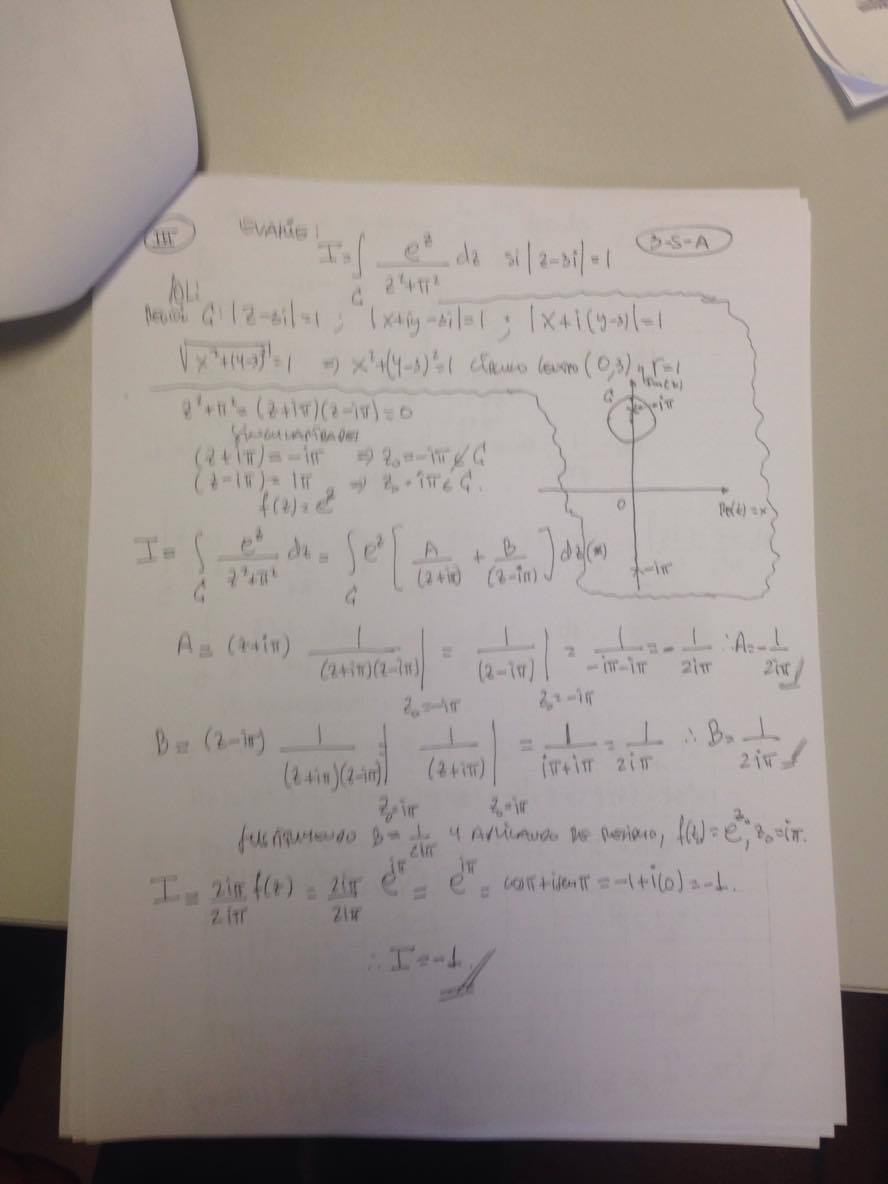 III EVALÚE: I = ∫_C e^z/(z²+π²) dz si |z-3i|=1 3-5-A
C: |z-3i|=1 ; |x+iy-3i|=1 ; |x+i(y-3)|=1
√(x²+(y-3)²)=1 ⇒ x²+(y-3)²=1 círculo centro (0,3) y r=1
Im(z)
C iπ
z²+π²=(z+iπ)(z-iπ)=0
singularidades
(z+iπ)=-iπ ⇒ z₀=-iπ ∉ C
(z-iπ)=iπ ⇒ z₀=iπ ∈ C.
f(z)=e^z
0 Re(z)=x
-iπ
I = ∫_C e^z/(z²+π²) dz = ∫_C e^z [A/(z+iπ) + B/(z-iπ)] dz (*)
A = (z+iπ) 1/((z+iπ)(z-iπ))| z₀=-iπ = 1/(z-iπ)| z₀=-iπ = 1/(-iπ-iπ) = -1/(2iπ) ∴ A=-1/(2iπ)
B = (z-iπ) 1/((z+iπ)(z-iπ))| z₀=iπ = 1/(z+iπ)| z₀=iπ = 1/(iπ+iπ) = 1/(2iπ) ∴ B=1/(2iπ)
sustituyendo B=1/(2iπ) y aplicando residuo, f(z₀)=e^z₀, z₀=iπ.
I = 2iπ/2iπ f(z) = 2iπ/2iπ e^iπ = e^iπ = cosπ+isenπ = -1+i(0) = -1.
∴ I = -1.